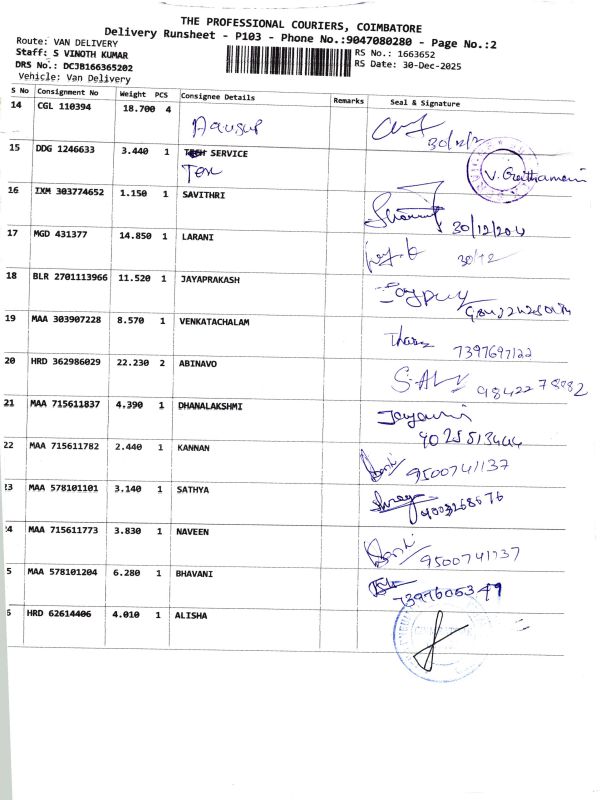 THE PROFESSIONAL COURIERS, COIMBATORE
Delivery Runsheet - P103 - Phone No.:9047080280 - Page No.:2
Route: VAN DELIVERY
RS No.: 1663652
Staff: S VINOTH KUMAR
RS Date: 30-Dec-2025
DRS No.: DCJB166365202
Vehicle: Van Delivery
S No Consignment No Weight PCS Consignee Details Remarks Seal & Signature
14 CGL 110394 18.700 4
30/12/2
15 DDG 1246633 3.440 1 TECH SERVICE
V. Geithamani
16 IXM 303774652 1.150 1 SAVITHRI
30/12/204
17 MGD 431377 14.850 1 LARANI
30/12
18 BLR 2701113966 11.520 1 JAYAPRAKASH
19 MAA 303907228 8.570 1 VENKATACHALAM
7397697122
20 HRD 362986029 22.230 2 ABINAVO
21 MAA 715611837 4.390 1 DHANALAKSHMI
22 MAA 715611782 2.440 1 KANNAN
9500741137
23 MAA 578101101 3.140 1 SATHYA
4 MAA 715611773 3.830 1 NAVEEN
9500741137
5 MAA 578101204 6.280 1 BHAVANI
7397606349
6 HRD 62614406 4.010 1 ALISHA